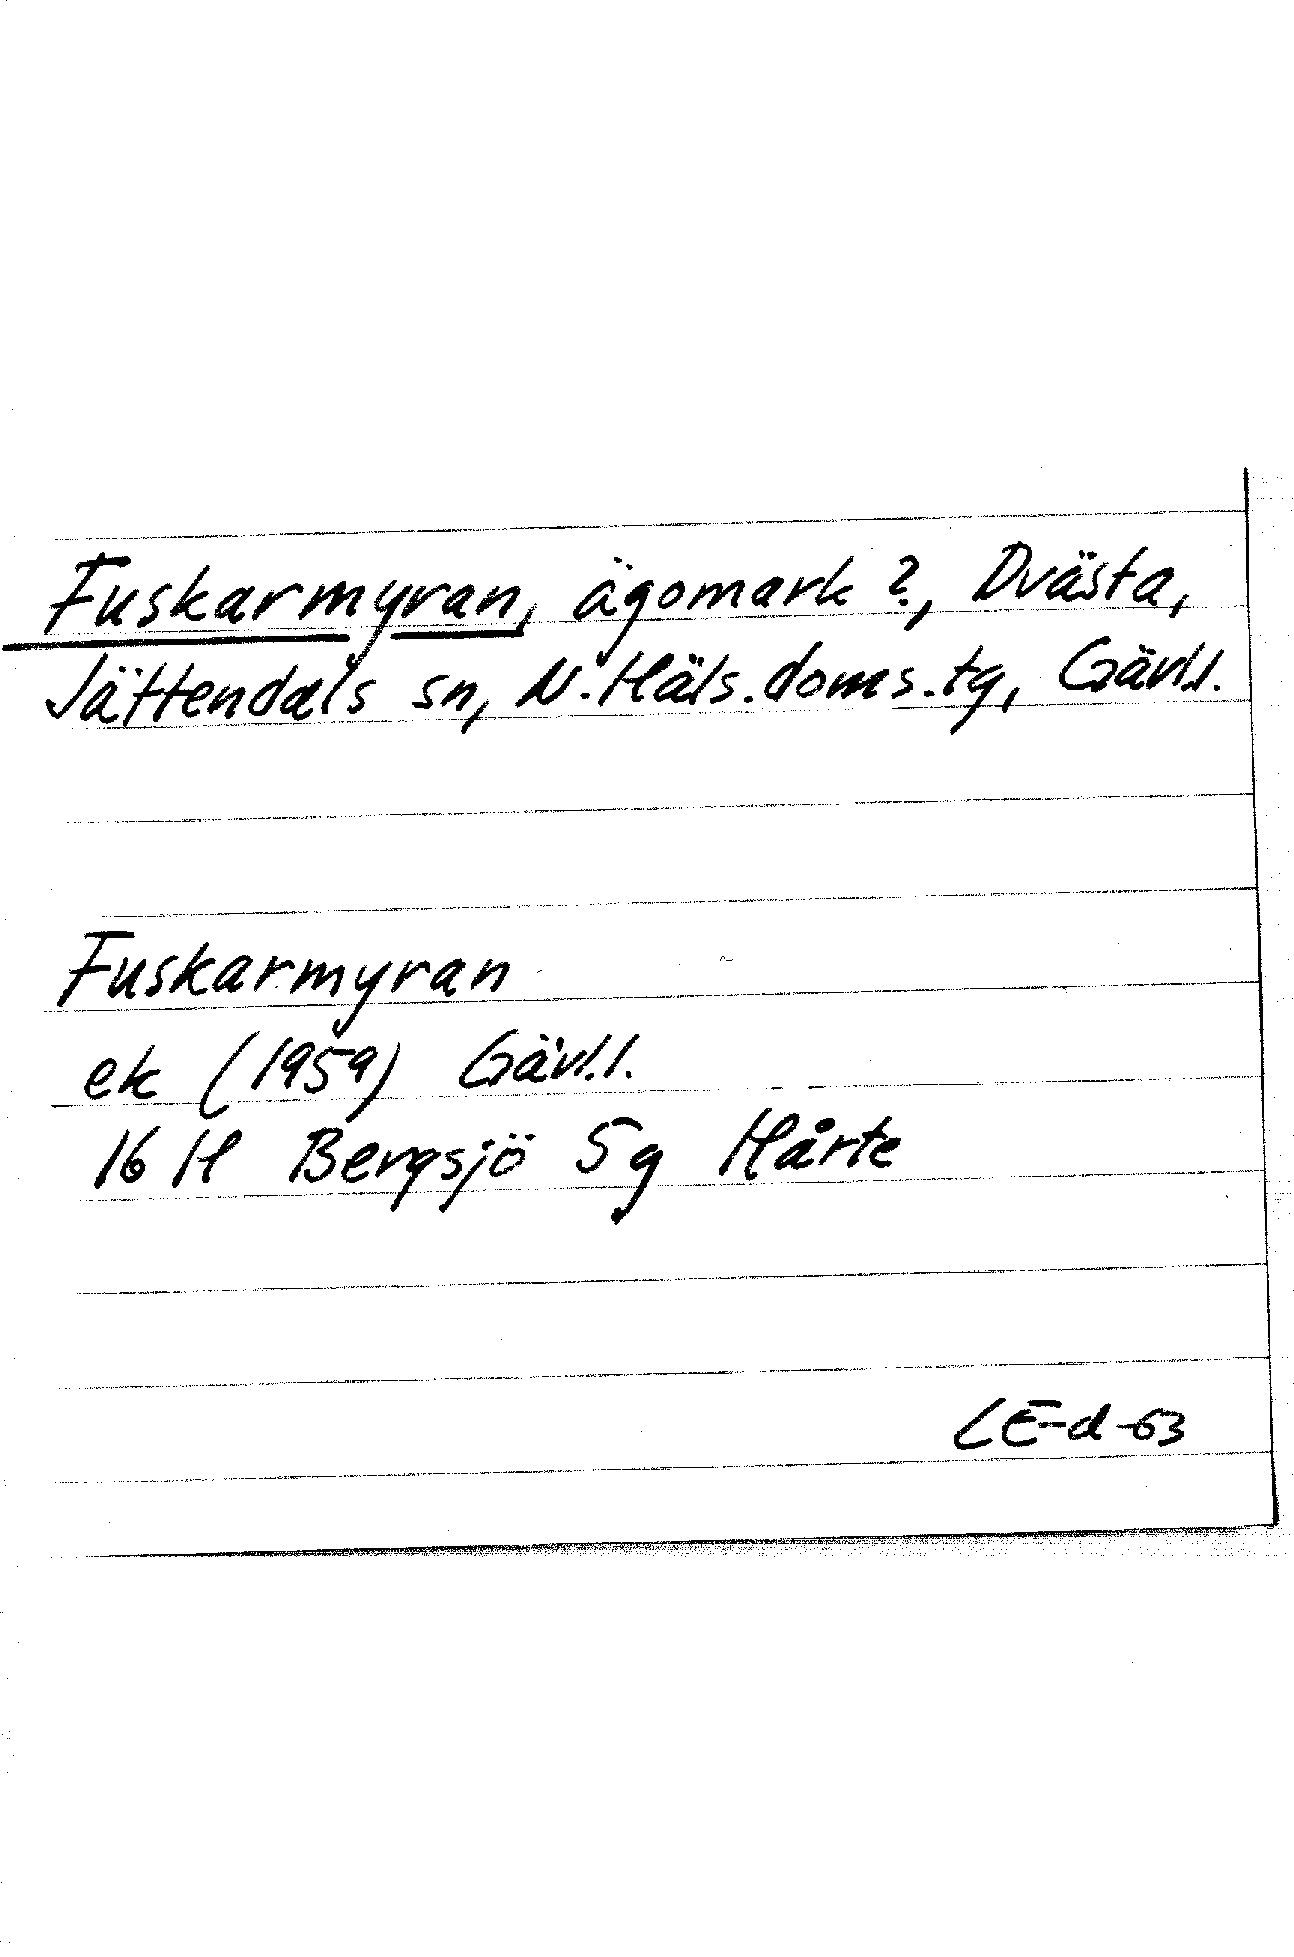 Fuskarmyran, ägomark?, Dvästa,
Jättendals sn, N. Häls. doms. tg, Gävl.l.
Fuskarmyran
ek (1959) Gävl.l.
16 H Bergsjö 5g Hårte
LE-d-63